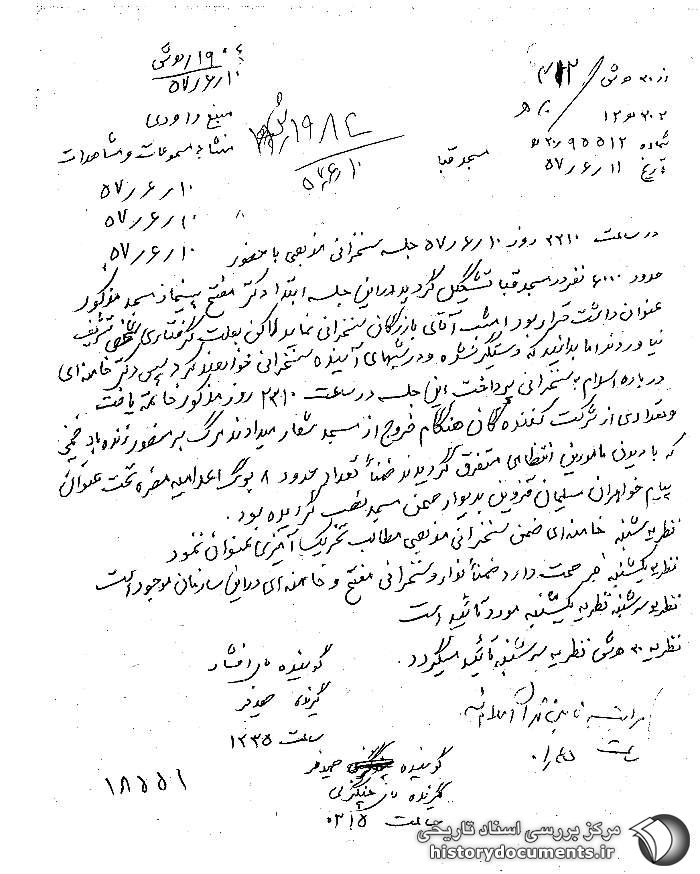 از ۳۰ هـ ش / ۳۱۲
۳۰۲ هـ ۱۲
شماره ۹۵۵۱۲ / ۳۰ هـ
تاریخ ۱۱ / ۶ / ۵۷
مسجد قبا
۵۷/۶/۱۰
منبع داودی
منشاء مسموعات و مشاهدات
۵۷/۶/۱۰
۵۷/۶/۱۰
۵۷/۶/۱۰
در ساعت ۲۲۱۰ روز ۵۷/۶/۱۰ جلسه سخنرانی مذهبی با حضور
حدود ۶۰۰۰ نفر در مسجد قبا تشکیل گردید در این جلسه ابتدا دکتر مفتح پیشنماز مسجد مذکور
عنوان داشت قرار بود امشب آقای بازرگان سخنرانی نماید لاکن بعلت گرفتاری تشریف
نیاوردند اما بدانید که دستگیر نشده و در شبهای آینده سخنرانی خواهند کرد سپس دکتر خامنه‌ای
درباره اسلام به سخنرانی پرداخت این جلسه در ساعت ۲۳۱۰ روز مذکور خاتمه یافت
و تعدادی از شرکت کننده گان هنگام خروج از مسجد شعار میدادند مرگ بر زنده باد خمینی
که با دیدن مامورین انتظامی متفرق گردیدند ضمناً تعداد حدود ۸ برگ اعلامیه مضره تحت عنوان
پیام خواهران مسلمان قزوین بدیوار صحن مسجد نصب گردیده بود.
نظریه شنبه خامنه‌ای ضمن سخنرانی مذهبی مطالب تحریک آمیزی عنوان نمود
نظریه یکشنبه خبر صحت دارد ضمناً نوار سخنرانی مفتح و خامنه‌ای در این سازمان موجود است
نظریه سه شنبه نظریه یکشنبه مورد تائید است
نظریه ۳۰ هـ ش نظریه سه شنبه تائید میگردد.
گوینده افشار
گیرنده
ساعت ۱۲۳۵
گوینده
گیرنده
ساعت ۰۳۱۵
ساعت
۱۸۵۵۱
مرکز بررسی اسناد تاریخی
historydocuments.ir